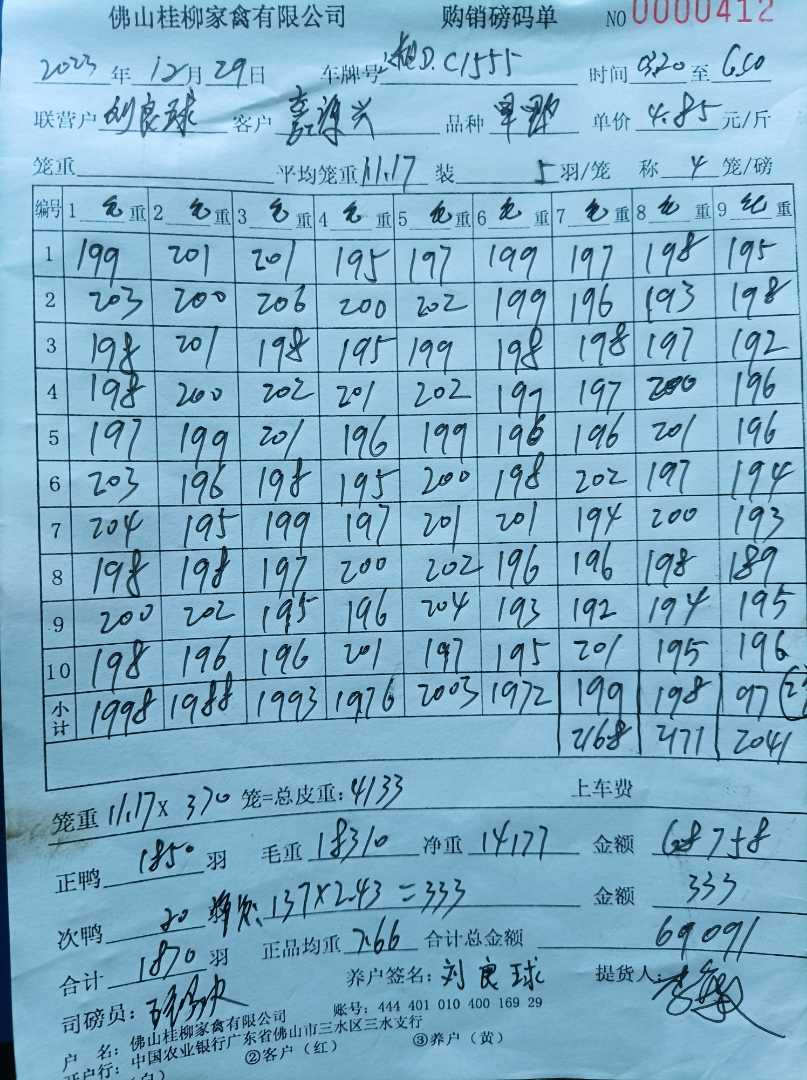 佛山桂柳家禽有限公司 购销磅码单 NO 0000412
2023年12月29日 车牌号 D.C1555 时间 0320至650
联营户 刘良球 客户 兴 品种 单价 4.85元/斤
笼重 平均笼重 11.17 装 5羽/笼 称 4笼/磅
编号 1 毛重 2 毛重 3 毛重 4 毛重 5 毛重 6 毛重 7 毛重 8 毛重 9 毛重
1 199 201 201 195 197 199 197 198 195
2 203 200 206 200 202 199 196 193 198
3 198 201 198 195 199 198 198 197 192
4 198 200 202 201 202 197 197 200 196
5 197 199 201 196 199 196 196 201 196
6 203 196 198 195 200 198 202 197 194
7 204 195 199 197 201 201 194 200 193
8 198 198 197 200 202 196 196 198 189
9 200 202 195 196 204 193 192 194 195
10 198 196 196 201 197 195 201 195 196
小计 1998 1988 1993 1976 2003 1972 199 198 97
2168 2171 2041
笼重 11.17×370笼=总皮重:4133 上车费
正鸭 1850羽 毛重 18310 净重 14177 金额 68758
次鸭 20 137×2.43=333 金额 333
合计 1870羽 正品均重 7.66 合计总金额 69091
司磅员: 养户签名:刘良球 提货人:
户 名:佛山桂柳家禽有限公司 账号:444 401 010 400 169 29
开户行:中国农业银行广东省佛山市三水区三水支行
(白) ②客户(红) ③养户(黄)